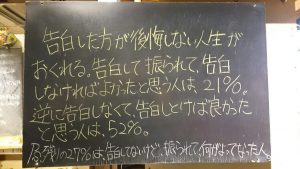 告白した方が後悔しない人生が
おくれる。告白して振られて、告白
しなければよかったと思う人は、21%。
逆に告白しなくて、告白しとけば良かった
と思う人は、52%。
残りの27%は、告白してないけど、振られて、何がよってなった人